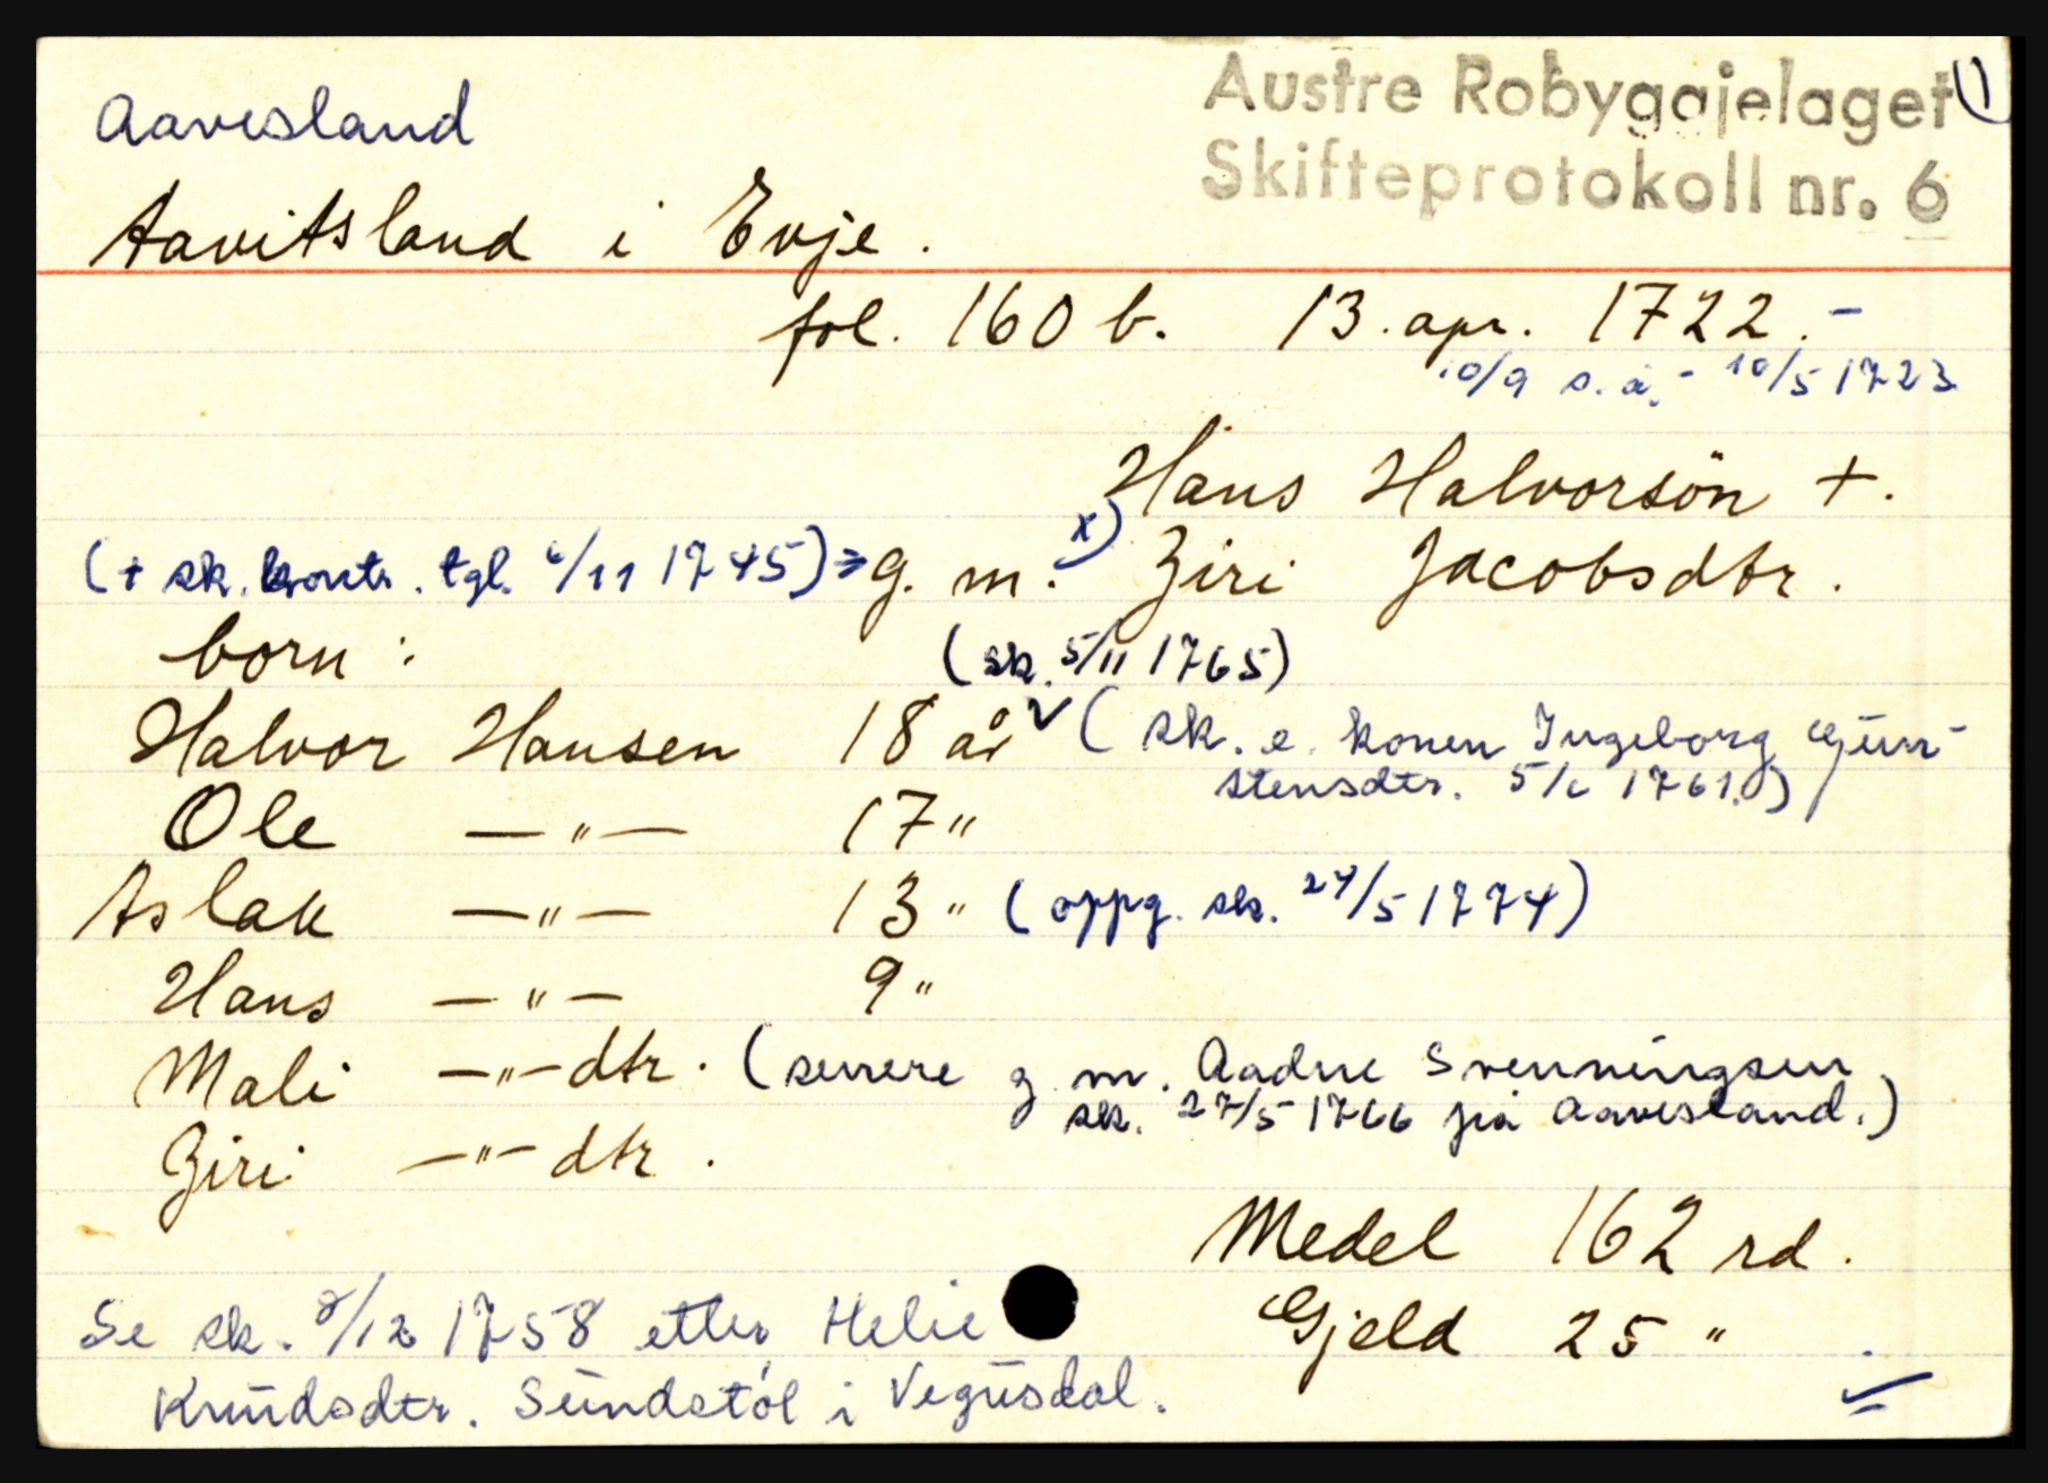 Austre Robyggjelaget 1)
Aavesland
Skifteprotokoll nr. 6
Aavitsland i Evje.
fol. 160 b. 13. apr. 1722.-
10/9 s.å.- 10/5 1723
Hans Halvorsön +.
(+ sk. kontr. tgl. 6/11 1745) g. m. x) Ziri Jacobsdtr.
born: (sk. 5/11 1765)
Halvor Hansen 18 år (sk. e. konen Ingeborg Gun-
stensdtr. 5/6 1761.)
Ole —"— 17 "
Aslak —"— 13 " (oppg. sk. 24/5 1774)
Hans —"— 9 "
Mali —"—dtr. (senere g. m. Aadne Svenningsen
sk. 27/5 1766 på Aavesland.)
Ziri —"—dtr.
Medel 162 rd.
Se sk. 8/12 1758 etter Helie
Gjeld 25 "
Knudsdtr. Sundstöl i Vegusdal.